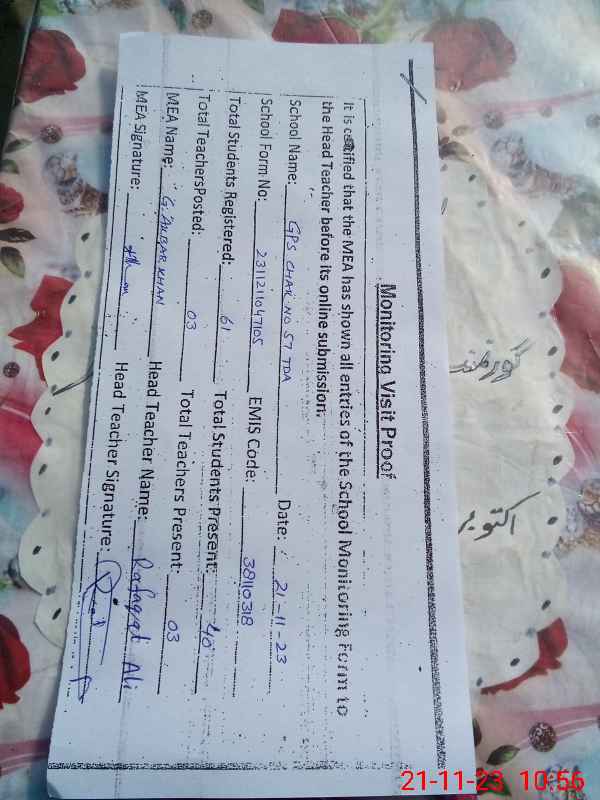 Monitoring Visit Proof
It is certified that the MEA has shown all entries of the School Monitoring Form to
the Head Teacher before its online submission.
School Name: GPS CHAK NO 57 TDA Date: 21-11-23
School Form No: 2311211047105 EMIS Code: 38110318
Total Students Registered: 61 Total Students Present: 40
Total TeachersPosted: 03 Total Teachers Present: 03
MEA Name: KHAN Head Teacher Name: Rafaqat Ali
MEA Signature: Head Teacher Signature:
اکتوبر
21-11-23 10:56